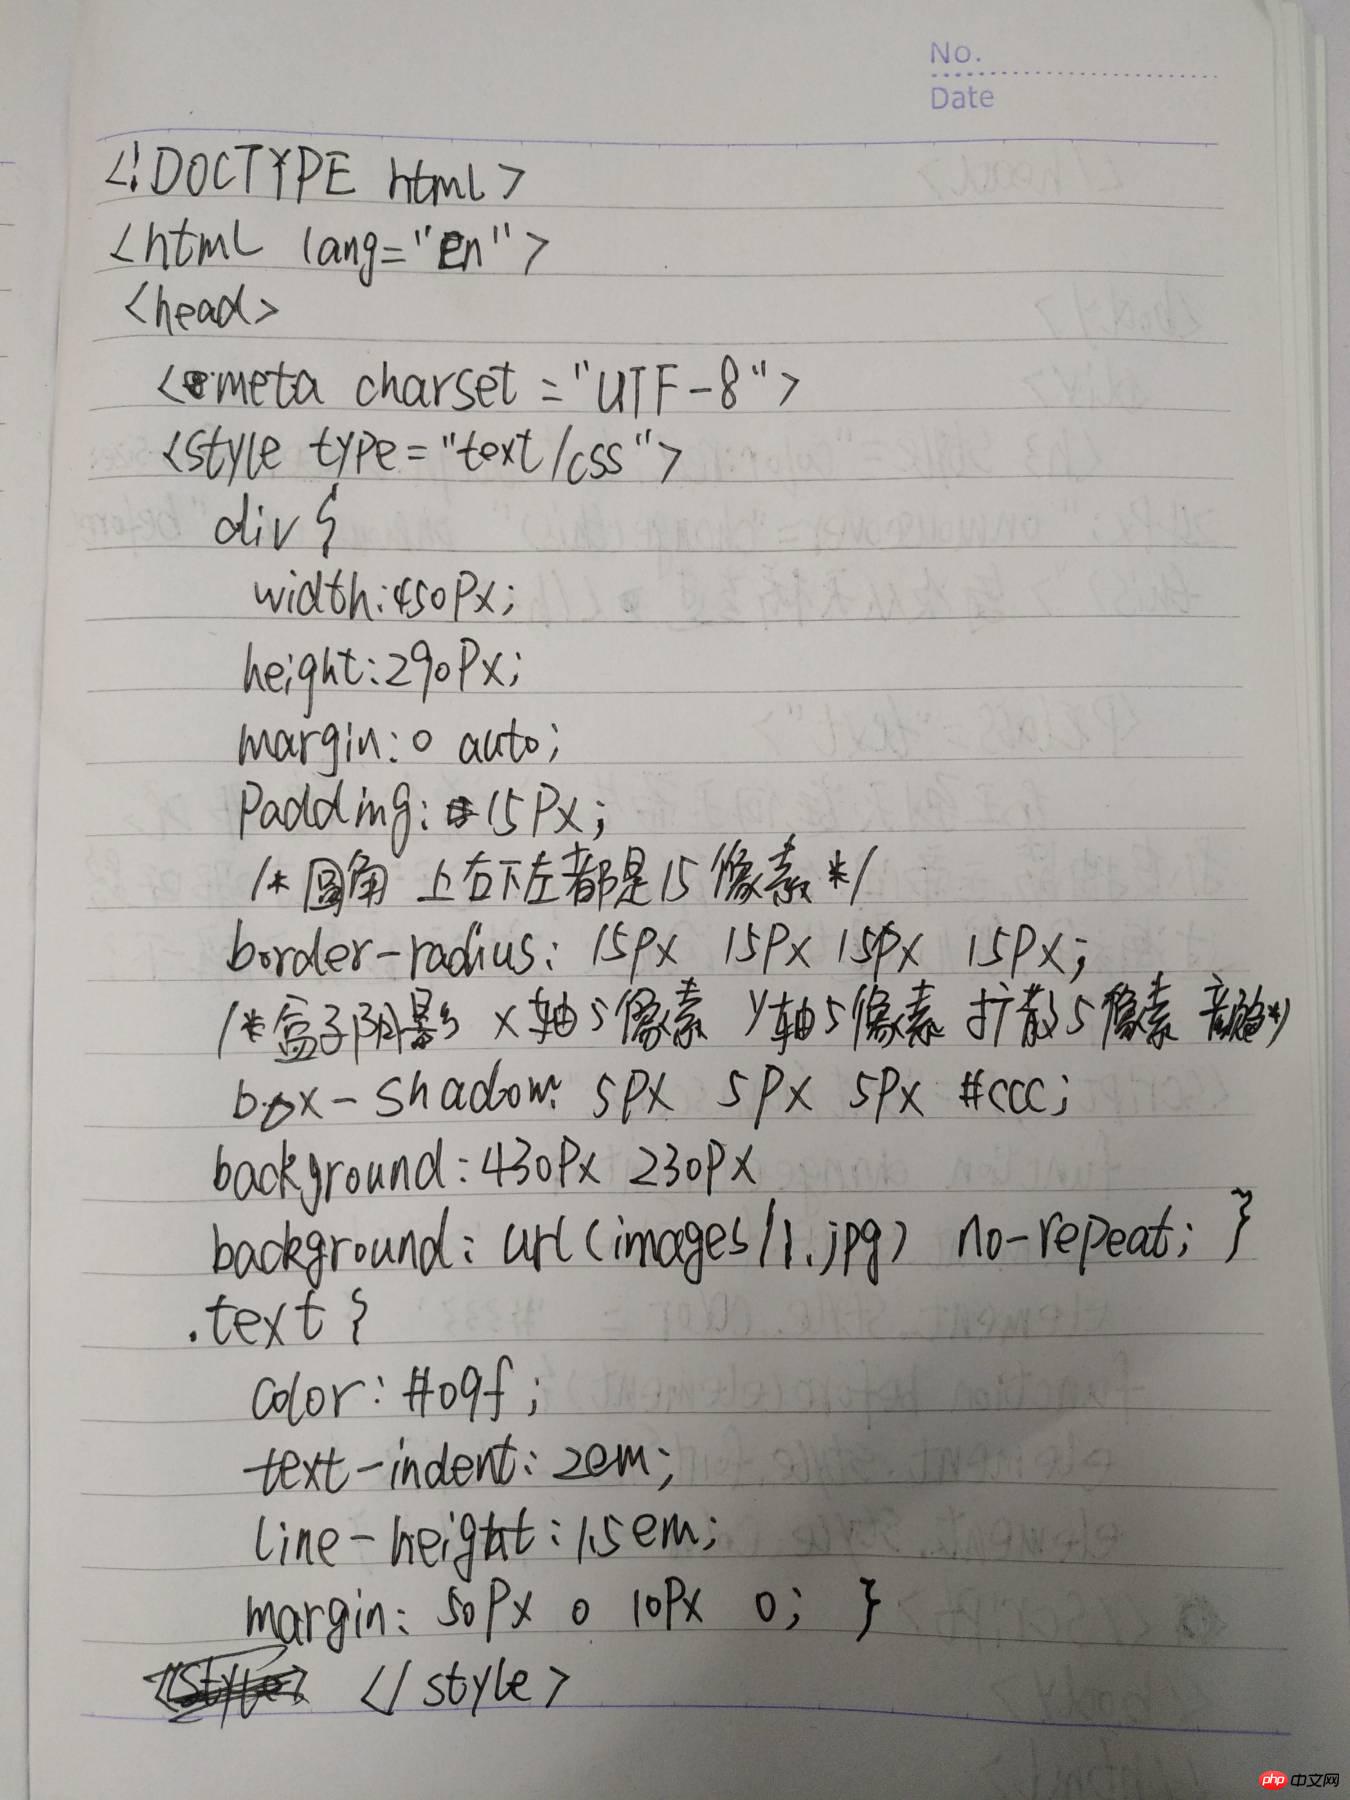 No.
Date
<!DOCTYPE html>
<html lang="en">
<head>
<meta charset="UTF-8">
<style type="text/css">
div {
width:450px;
height:290px;
margin:0 auto;
padding:15px;
/*圆角 上右下左都是15像素*/
border-radius: 15px 15px 15px 15px;
/*盒子阴影 x轴5像素 y轴5像素 扩散5像素
box-shadow: 5px 5px 5px #ccc;
background:430px 230px
background: url(images/1.jpg) no-repeat; }
.text {
color: #09f;
text-indent: 2em;
line-height: 1.5em;
margin: 50px 0 10px 0; }
</style>
php 中文网